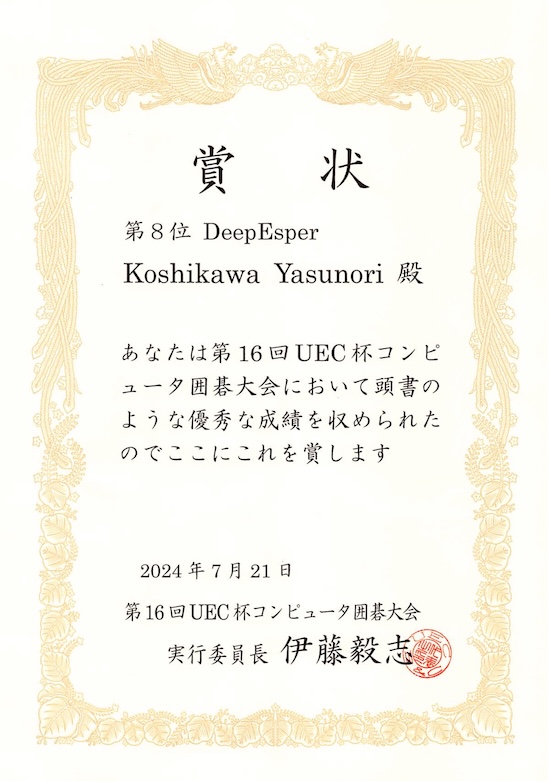 賞状
第8位 DeepEsper
Koshikawa Yasunori 殿
あなたは第16回UEC杯コンピ
ュータ囲碁大会において頭書の
ような優秀な成績を収められた
のでここにこれを賞します
2024年7月21日
第16回UEC杯コンピュータ囲碁大会
実行委員長 伊藤毅志